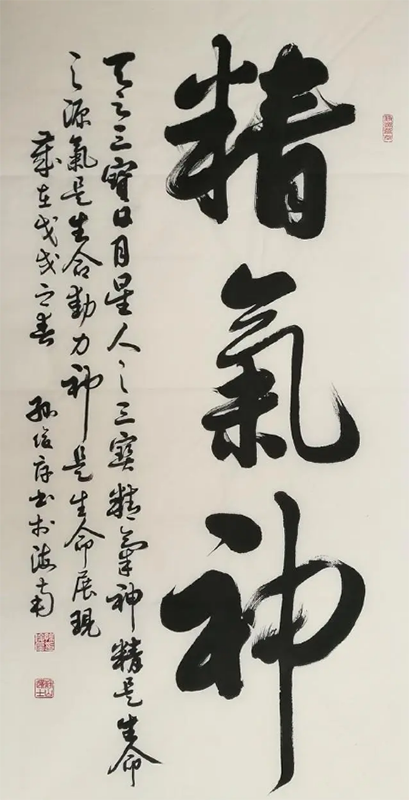 精氣神
天之三寶日月星人之三寶精氣神精是生命
之源氣是生命動力神是生命展現
歲在戊戌之春
孫俊存書於海南